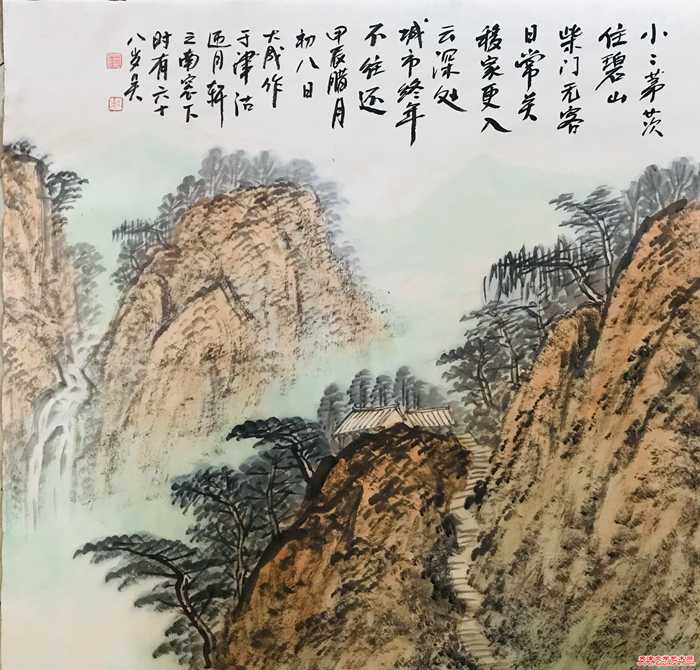 小〻茅茨
住碧山
柴门无客
日常关
移家更入
云深处
城市终年
不往还
甲辰腊月
初八日
大成作
于津沽
迎月轩
之南窗下
时有六十
八岁矣